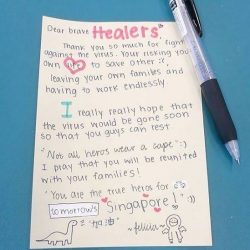 Dear brave Healers,
Thank you so much for fight
against the virus. Your risking you
own to save other :,
leaving your own familes and
having to work endlessly
I really really hope that
the virus would be gone soon
so that you guys can rest
"Not all heros wear a cape" :)
I pray that you will be reunited
with your families!
"You are the true heros for
tomorrow's Singapore!"
加油
~felicia~